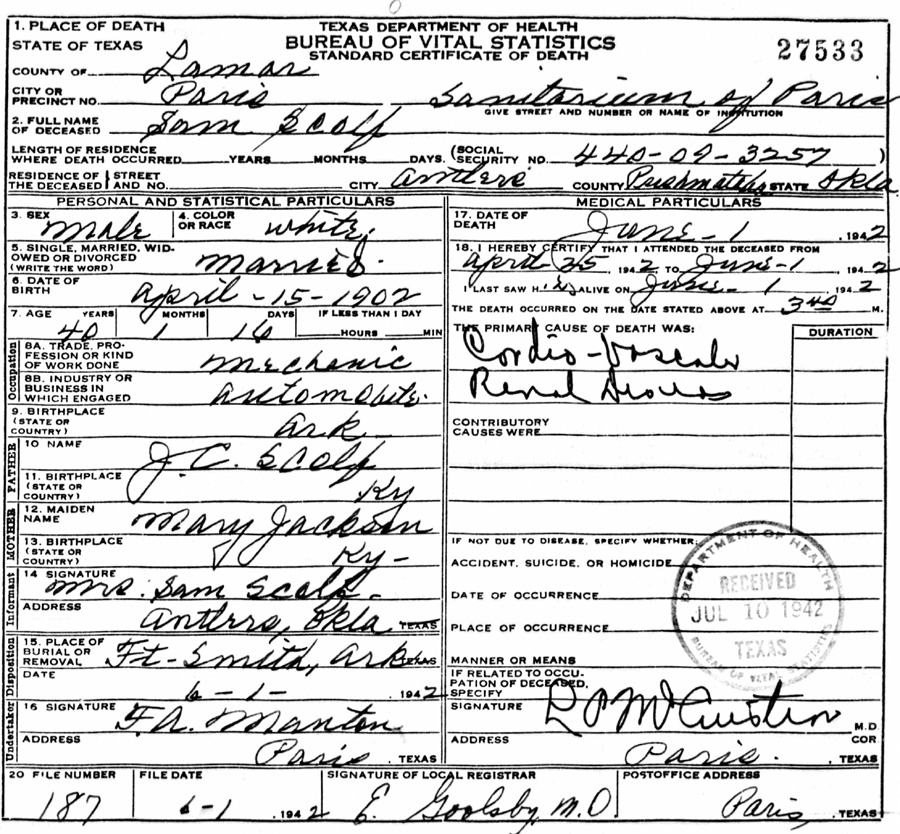 1. PLACE OF DEATH
STATE OF TEXAS
TEXAS DEPARTMENT OF HEALTH
BUREAU OF VITAL STATISTICS
STANDARD CERTIFICATE OF DEATH
27533
COUNTY OF Lamar
CITY OR PRECINCT NO. Paris Sanitarium of Paris
GIVE STREET AND NUMBER OR NAME OF INSTITUTION
2. FULL NAME OF DECEASED Sam Scolf
LENGTH OF RESIDENCE WHERE DEATH OCCURRED YEARS MONTHS DAYS. (SOCIAL SECURITY NO. 440-09-3257)
RESIDENCE OF THE DECEASED STREET AND NO. CITY Antlers COUNTY Pushmataha STATE Okla
PERSONAL AND STATISTICAL PARTICULARS
3. SEX Male 4. COLOR OR RACE white
5. SINGLE, MARRIED, WIDOWED OR DIVORCED (WRITE THE WORD) Married
6. DATE OF BIRTH April-15-1902
7. AGE YEARS MONTHS DAYS IF LESS THAN 1 DAY
40 1 16 HOURS MIN
Occupation
8A. TRADE, PROFESSION OR KIND OF WORK DONE Mechanic
8B. INDUSTRY OR BUSINESS IN WHICH ENGAGED Automobile
9. BIRTHPLACE (STATE OR COUNTRY) Ark.
FATHER
10 NAME J. C. Scolf
11. BIRTHPLACE (STATE OR COUNTRY) Ky
MOTHER
12. MAIDEN NAME Mary Jackson
13. BIRTHPLACE (STATE OR COUNTRY) Ky-
Informant
14 SIGNATURE Mrs. Sam Scolf-
ADDRESS Antlers, Okla TEXAS
Undertaker Disposition
15. PLACE OF BURIAL OR REMOVAL Ft-Smith, Ark. TEXAS
DATE 6-1- 1942
16 SIGNATURE F. A. Manton
ADDRESS Paris, TEXAS
MEDICAL PARTICULARS
17. DATE OF DEATH June-1, 1942
18. I HEREBY CERTIFY THAT I ATTENDED THE DECEASED FROM
April 25, 1942 TO June-1, 1942
I LAST SAW H im ALIVE ON June-1 1942
THE DEATH OCCURRED ON THE DATE STATED ABOVE AT 3:40 M.
THE PRIMARY CAUSE OF DEATH WAS: DURATION
Cardio-Vascular
Renal
CONTRIBUTORY CAUSES WERE
IF NOT DUE TO DISEASE, SPECIFY WHETHER:
ACCIDENT, SUICIDE, OR HOMICIDE
DATE OF OCCURRENCE
PLACE OF OCCURRENCE
MANNER OR MEANS
IF RELATED TO OCCUPATION OF DECEASED, SPECIFY
DEPARTMENT OF HEALTH
RECEIVED
JUL 10 1942
TEXAS
BUREAU OF VITAL STATISTICS
SIGNATURE McCuistion M.D.
ADDRESS Paris. COR. TEXAS
20 FILE NUMBER FILE DATE SIGNATURE OF LOCAL REGISTRAR POSTOFFICE ADDRESS
187 6-1 1942 E. Goolsby, M.D Paris, TEXAS